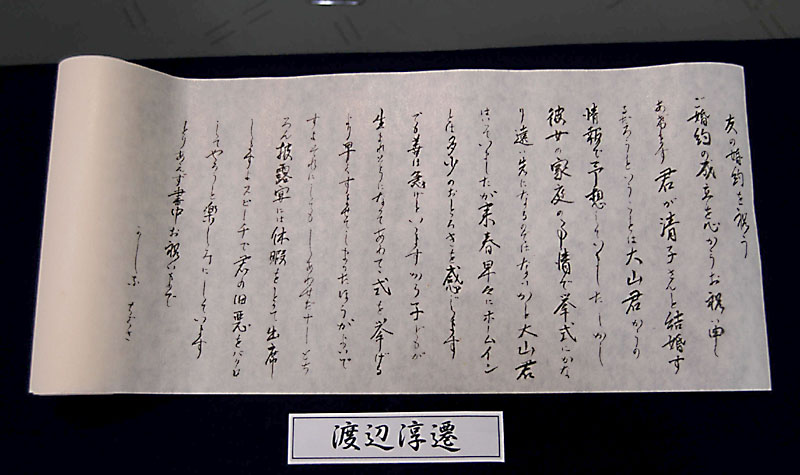 友の婚約を祝う
ご婚約の成立を心からお祝い申し
あげます 君が清子さんと結婚す
るだろうということは大山君からの
情報で予想していました しかし
彼女の家庭の事情で挙式はかな
り遠い先になるのではないかと大山君
はいっていましたが来春早々にホームイン
とは多少のおどろきを感じます
でも善は急げといいますから子どもが
生まれそうになってあわてて式を挙げる
より早くすませてしまったほうがよいで
すよ それにしても しあわせだナ
ろん披露宴には休暇をとって出席
しますよスピーチで君の旧悪をバクロ
してやろうと楽しみにしています
とりあえず書中お祝いまで
渡辺淳遷